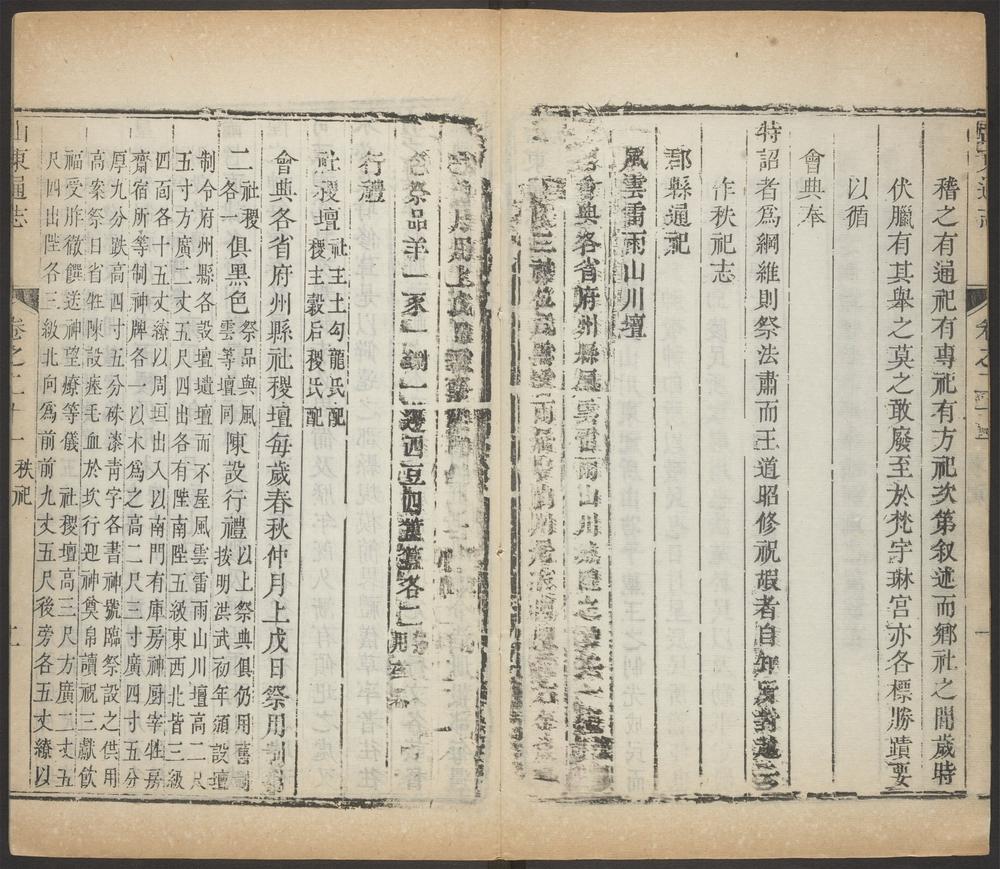 稽之有通祀有專祀有方祀次第叙述而鄉社之間歲時
伏臘有其舉之莫之敢廢至於梵宇琳宮亦各標勝蹟要
以循
會典奉
特詔者爲綱維則祭法肅而王道昭修祝嘏者自
作秩祀志
郡縣通祀
風雲雷雨山川壇
會典各省府州縣風雲雷雨山川城隍之
祭品羊一豕一鉶一籩四豆四簠簋各二
行禮
社稷壇社主土句龍氏配
稷主穀后稷氏配
會典各省府州縣社稷壇每歲春秋仲月上戊日祭用制
二社稷各一俱黑色祭品與風雲等壇同陳設行禮以上祭典俱仍用舊
按明洪武初年頒設壇
制令府州縣各設壇壝壇而不屋風雲雷雨山川壇高二尺
五寸方廣二丈五尺四出各有陛南陛五級東西北皆三級
四面各十五丈繚以周垣出入以南門有庫房神厨宰牲房
齋宿所等制神牌各一以木爲之高二尺三寸廣四寸五分
厚九分趺高四寸五分硃漆青字各書神號臨祭設之供用
高案祭日省牲陳設瘞毛血於坎行迎神奠帛讀祝三獻飲
福受胙徹饌送神望燎等儀 社稷壇高三尺方廣二丈五
尺四出陛各三級北向爲前前九丈五尺後旁各五丈繚以
山東通志
卷之二十一 秩祀
二